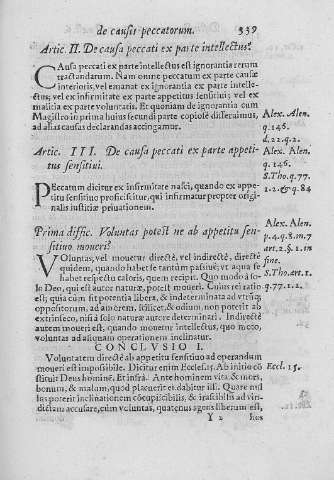 de causis peccatorum. 339
Artic. II. De causa peccati ex parte intellectus?
CAusa peccati ex parte intellectus est ignorantia rerum
tractandarum. Nam omne peccatum ex parte causæ
interioris, vel emanat ex ignorantia ex parte intelle-
ctus; vel ex infirmitate ex parte appetitus sensitiui; vel ex
malitia ex parte voluntatis. Et quoniam de ignorantia cum
Magistro in prima huius secundi parte copiosè disseruimus,
ad alias causas declarandas accingamur.
Alex. Alen.
q. 146.
d. 22. q. 2.
Artic. III. De causa peccati ex parte appeti-
tus sensitiui.
Alex. Alen.
q. 146.
S. Tho. q. 77.
1. 2. & q. 84
PEccatum dicitur ex infirmitate nasci, quando ex appe-
titu sensitiuo proficiscitur, qui infirmatur propter origi-
nalis iustitiæ priuationem.
Prima diffic. Voluntas potest ne ab appetitu sen-
sitiuo moueri?
Alex. Alen.
p. 4. q. 8. m. 7
art. 2. §. 1. in
fine.
S. Tho. art. 1.
q. 77. 1. 2.
VOluntas, vel mouetur directè, vel indirectè, directè
quidem, quando habet se tantum passiuè; vt aqua se
habet respectu caloris, quem recipit. Quo modo à so-
lo Deo, qui est autor naturæ, potest moueri. Cuius rei ratio
est; quia cum sit potentia libera, & indeterminata ad vtrumq;
oppositorum, ad amorem, scilicet, & odium, non poterit ab
extrinseco, nisi à solo naturæ autore determinari. Indirectè
autem moueri est, quando mouetur intellectus, quo moto,
voluntas ad aliquam operationem inclinatur.
CONCLVSIO I.
Voluntatem directè ab appetitu sensitiuo ad operandum
moueri est impossibile. Dicitur enim Ecclesi. 15. Ab initio cō
stituit Deus hominē. Et infrà. Ante hominem vita & mors,
bonum, & malum, quod placuerit ei dabitur illi. Quare nul
lus poterit inclinationem cōcupiscibilis, & irascibilis ad vin-
dictam accusare, cùm voluntas, quatenus agens liberum est,
Eccl. 15.
Y 2 suos